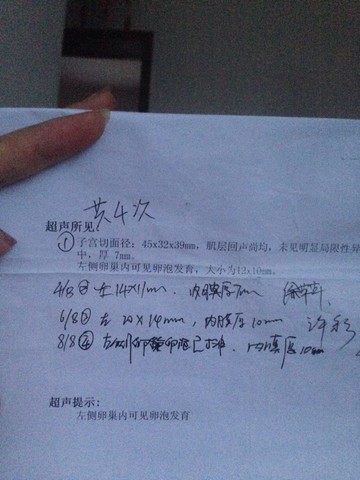 共4次
超声所见:
① 子宫切面径: 45x32x39mm, 肌层回声尚均, 未见明显局限性异
中, 厚 7mm。
左侧卵巢内可见卵泡发育, 大小为12x10mm。
4/8 ② 左14×11mm, 内膜厚7mm
6/8 ③ 左 20×14mm, 内膜厚10mm 许彩
8/8 ④ 左侧卵泡已排. 内膜厚10mm
超声提示:
左侧卵巢内可见卵泡发育